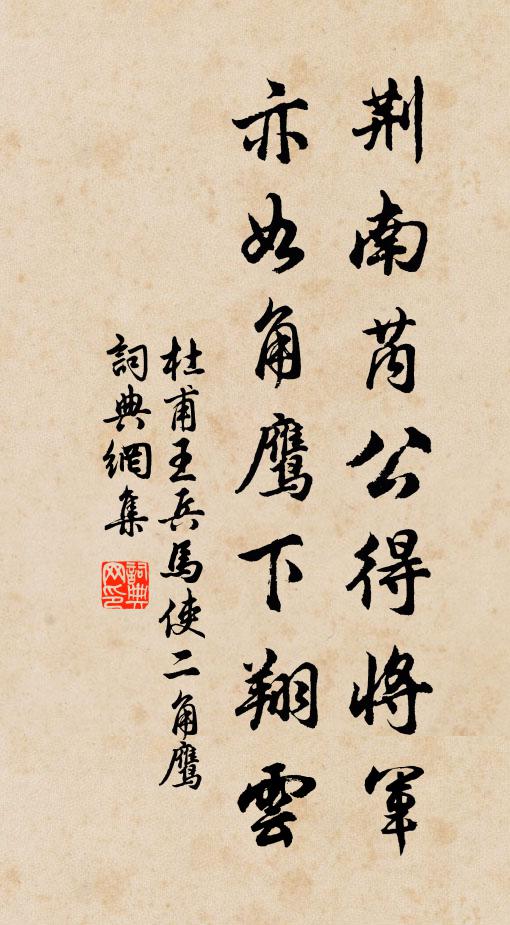 荆南芮公得將軍
亦如角鷹下翔雲
杜甫王兵馬使二角鷹
詞典網集
詞典网印